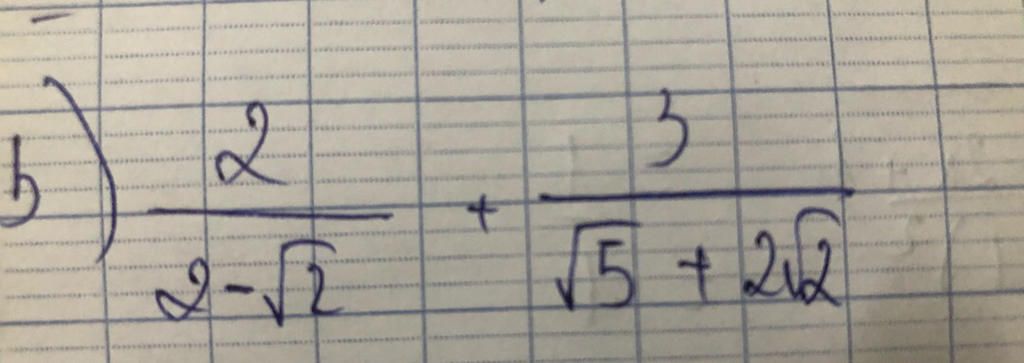 b) 2/(2-√2) + 3/(√5 + 2√2)